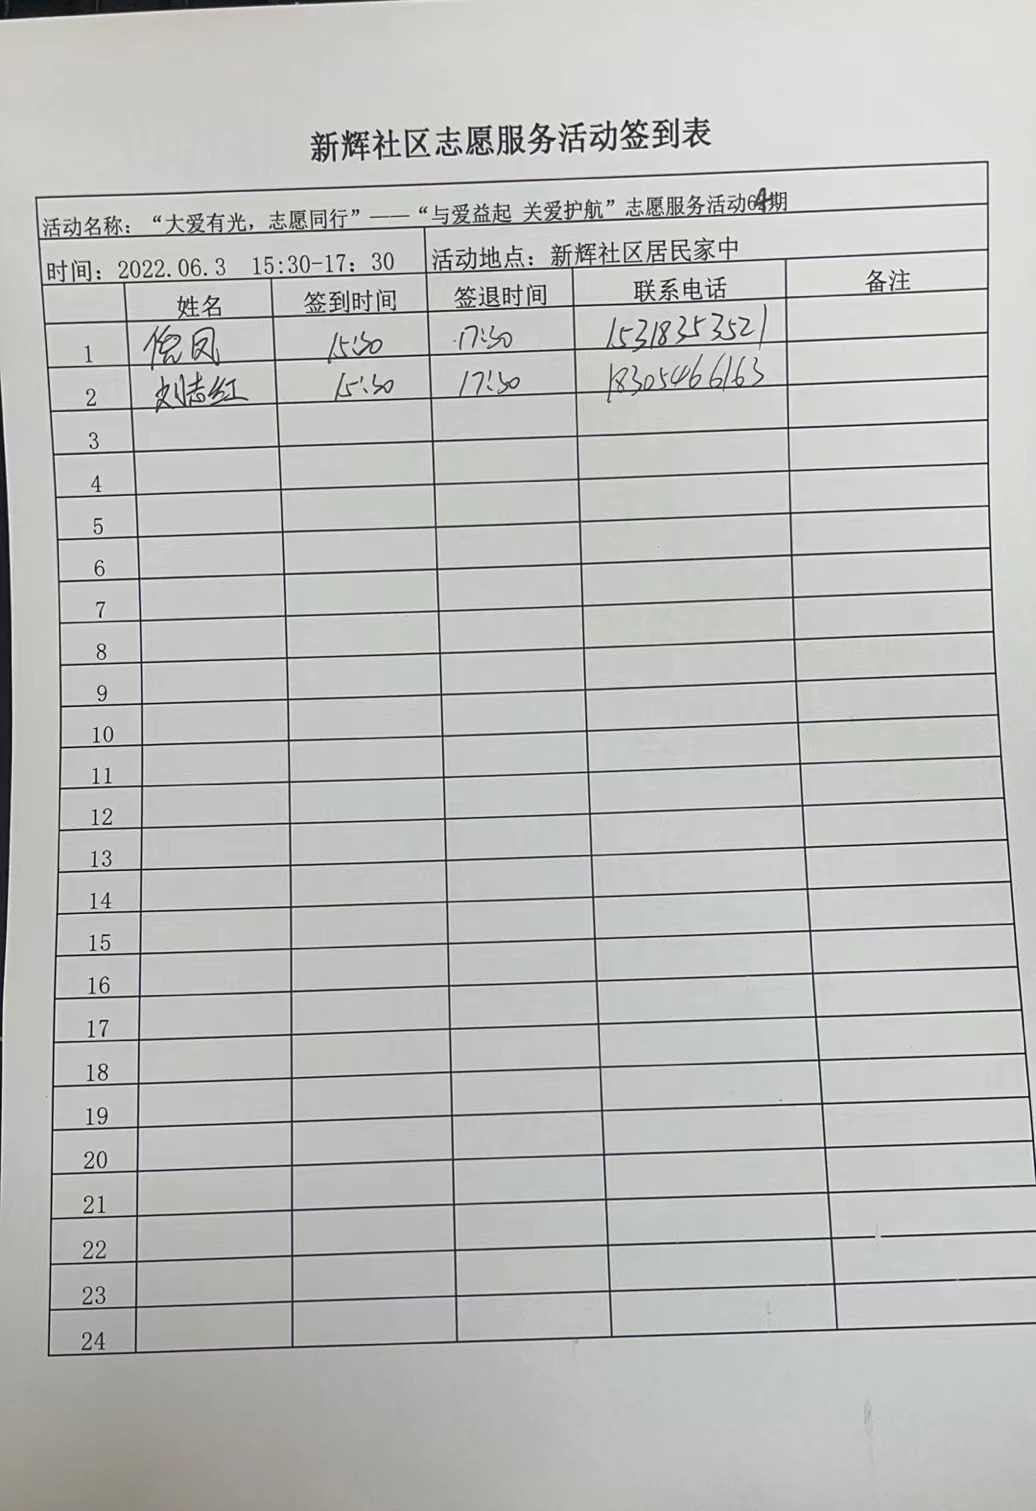 新辉社区志愿服务活动签到表
活动名称：“大爱有光，志愿同行”——“与爱益起 关爱护航”志愿服务活动64期
时间：2022.06.3 15:30-17：30 活动地点：新辉社区居民家中
姓名 签到时间 签退时间 联系电话 备注
1 倪凤 15:30 17:30 15318353521
2 刘志红 15:30 17:30 18305466163
3
4
5
6
7
8
9
10
11
12
13
14
15
16
17
18
19
20
21
22
23
24